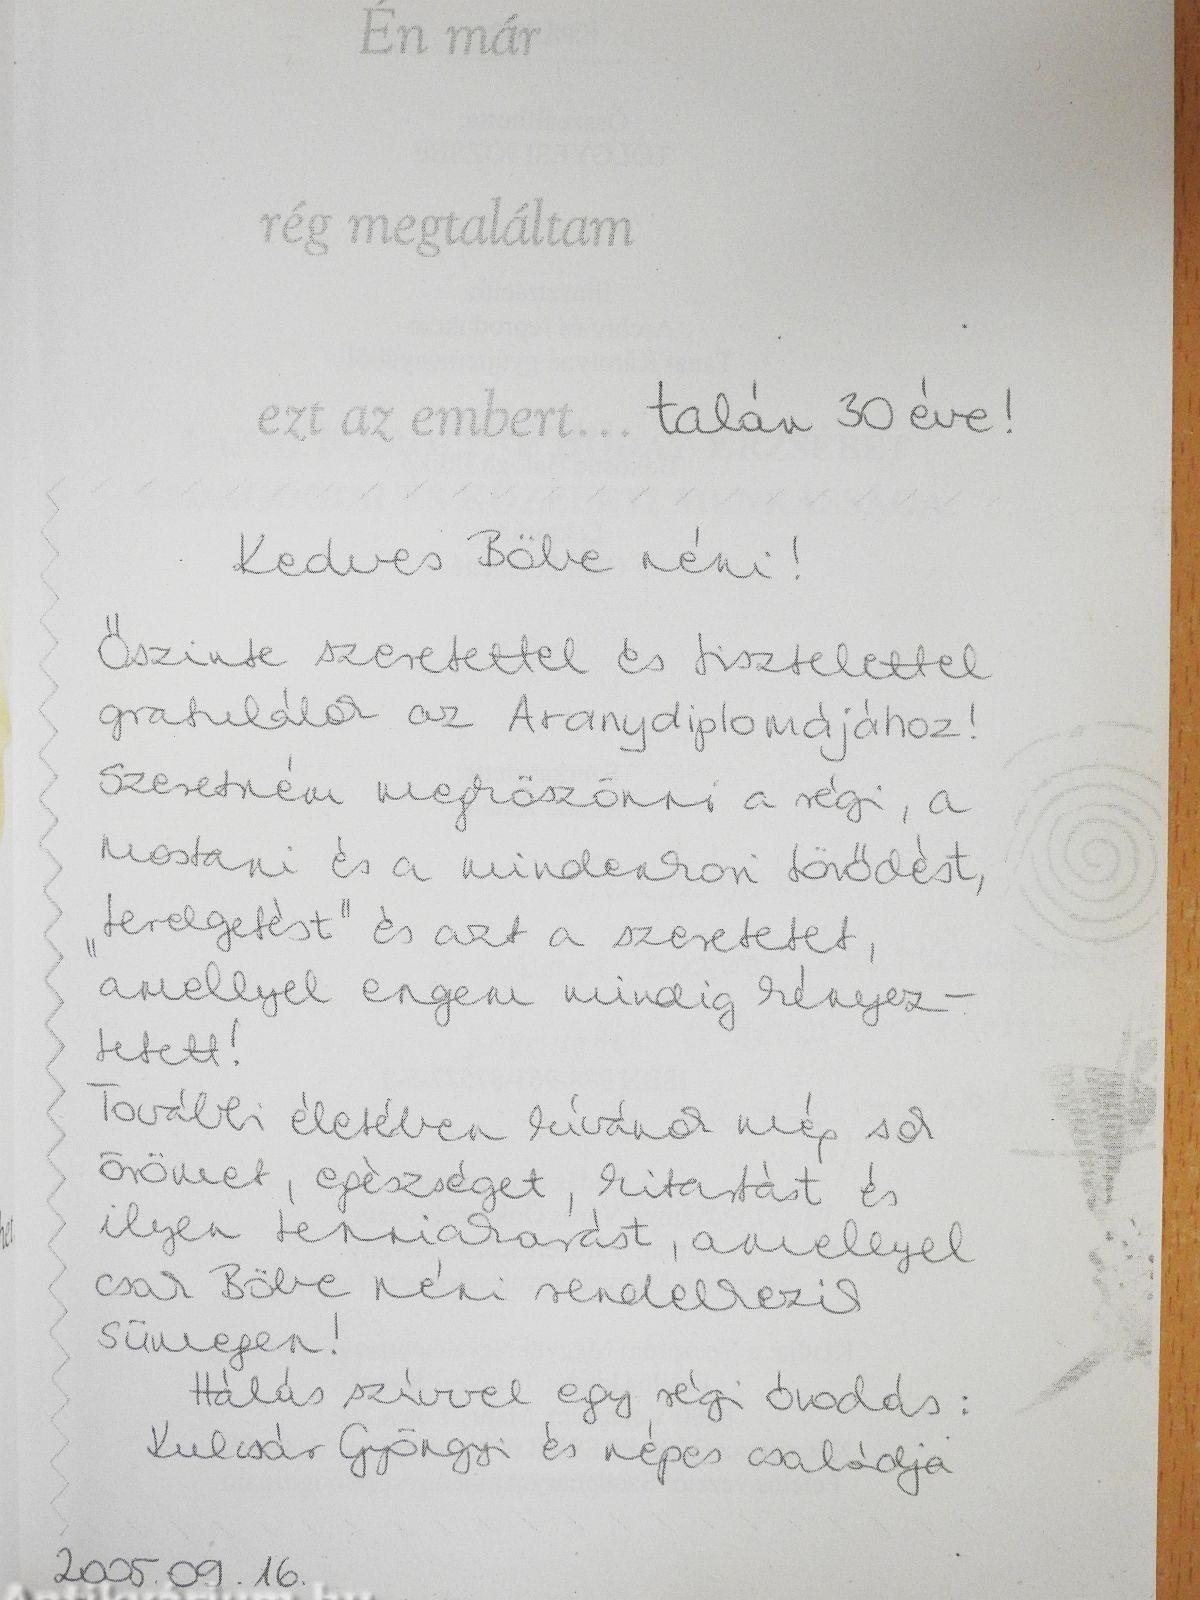 Én már
rég megtaláltam
ezt az embert... talán 30 éve!
Kedves Böbe néni!
Őszinte szeretettel és tisztelettel
gratulálok az Aranydiplomájához!
Szeretném megköszönni a régi, a
mostani és a mindenkori törődést,
„terelgetést" és azt a szeretetet,
amellyel engem mindig kényez-
tetett!
További életében kívánok még sok
örömet, egészséget, kitartást és
ilyen tenniakarást, amellyel
csak Böbe néni rendelkezik
Sümegen!
Hálás szívvel egy régi óvodás:
Kulcsár Gyöngyi és népes családja
2005.09.16.
Antikvárium.hu